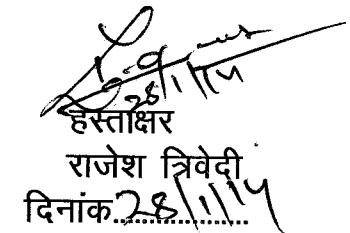 28/1/14
हस्ताक्षर
राजेश त्रिवेदी
दिनांक 28/1/14